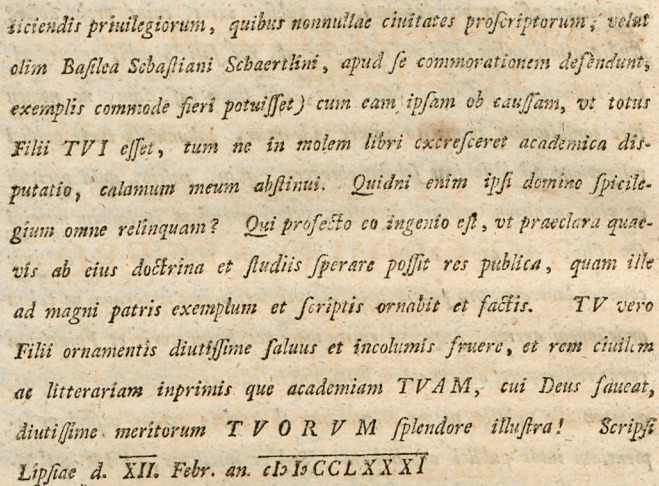 iiciendis priuilegiorum, quibus nonnullae ciuitates proſcriptorum, velut
olim Baſilea Sebaſtiani Schaertlini, apud ſe commorationem defendunt,
exemplis commode fieri potuiſſet) cum eam ipſam ob cauſſam, vt totus
Filii TVI eſſet, tum ne in molem libri excreſceret academica diſ-
putatio, calamum meum abſtinui. Quidni enim ipſi domino ſpicile-
gium omne relinquam? Qui profecto eo ingenio eſt, vt praeclara quae-
vis ab eius doctrina et ſtudiis ſperare poſſit res publica, quam ille
ad magni patris exemplum et ſcriptis ornabit et factis. TV vero
Filii ornamentis diutiſſime ſaluus et incolumis fruere, et rem ciuilem
ac litterariam inprimis que academiam TVAM, cui Deus faueat,
diutiſſime meritorum TVORVM ſplendore illuſtra! Scripſi
Lipſiae d. XII. Febr. an. cIↄIↄCCLXXXI